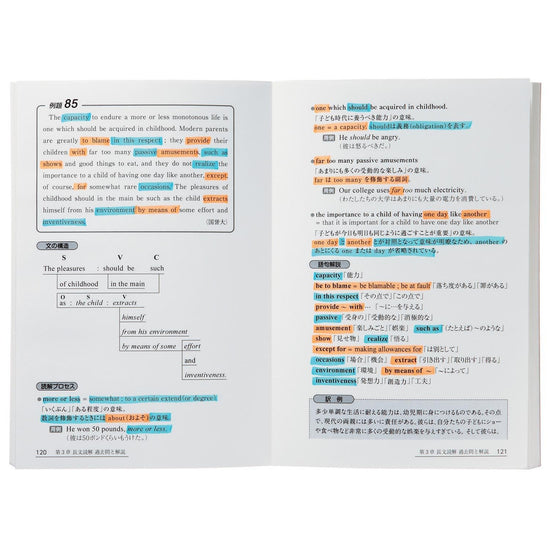 例題 85
The capacity to endure a more or less monotonous life is
one which should be acquired in childhood. Modern parents
are greatly to blame in this respect ; they provide their
children with far too many passive amusements, such as
shows and good things to eat, and they do not realize the
importance to a child of having one day like another, except,
of course, for somewhat rare occasions. The pleasures of
childhood should in the main be such as the child extracts
himself from his environment by means of some effort and
inventiveness.
文の構造
S V C
The pleasures : should be such
of childhood in the main
O S V
as : the child : extracts
himself
from his environment
by means of some effort
and
inventiveness.
読解プロセス
●more or less = somewhat; to a certain extend(or degree)
「いくぶん」「ある程度」の意味。
数詞を修飾するときには about(およそ)の意味。
用例 He won 50 pounds, more or less.
(彼は50ポンドくらいもうけた。)
120 第3章 長文読解 過去問と解説
●one which should be acquired in childhood.
「子ども時代に養うべき能力」の意味。
one = a capacity, shouldは義務(obligation)を表す。
用例 He should be angry.
(彼は怒るべきだ。)
●far too many passive amusements
「あまりにも多くの受動的な楽しみ」の意味。
far は too many を修飾する副詞。
用例 Our college uses far too much electricity.
(わたしたちの大学はあまりにも大量の電力を消費している。)
●the importance to a child of having one day like another =
= that it is important for a child to have one day like another
「子どもが今日も明日も同じように過ごすことが重要」の意味。
one day と another とが対照となって意味が明瞭なため、another の
あとにくる one または day が省略されている。
語句解説
capacity「能力」
be to blame = be blamable ; be at fault「落ち度がある」「罪がある」
in this respect「その点で」「この点で」
provide ~ with …「〜に…を与える」
passive「受身の」「受動的な」「消極的な」
amusement「楽しみごと」「娯楽」 such as「(たとえば)〜のような」
show「見せ物」 realize「悟る」
except for = making allowances for「は別として」
occasions「場合」「機会」 extract「引き出す」「取り出す」「得る」
environment「環境」 by means of ~「〜によって」
inventiveness「発想力」「創造力」「工夫」
訳 例
多少単調な生活に耐える能力は、幼児期に身につけるものである。その点
で、現代の両親には多いに責任がある。彼らは、自分たちの子どもにショー
や食べ物など非常に多くの受動的な娯楽を与えすぎている。そして彼らは、
第3章 長文読解 過去問と解説 121